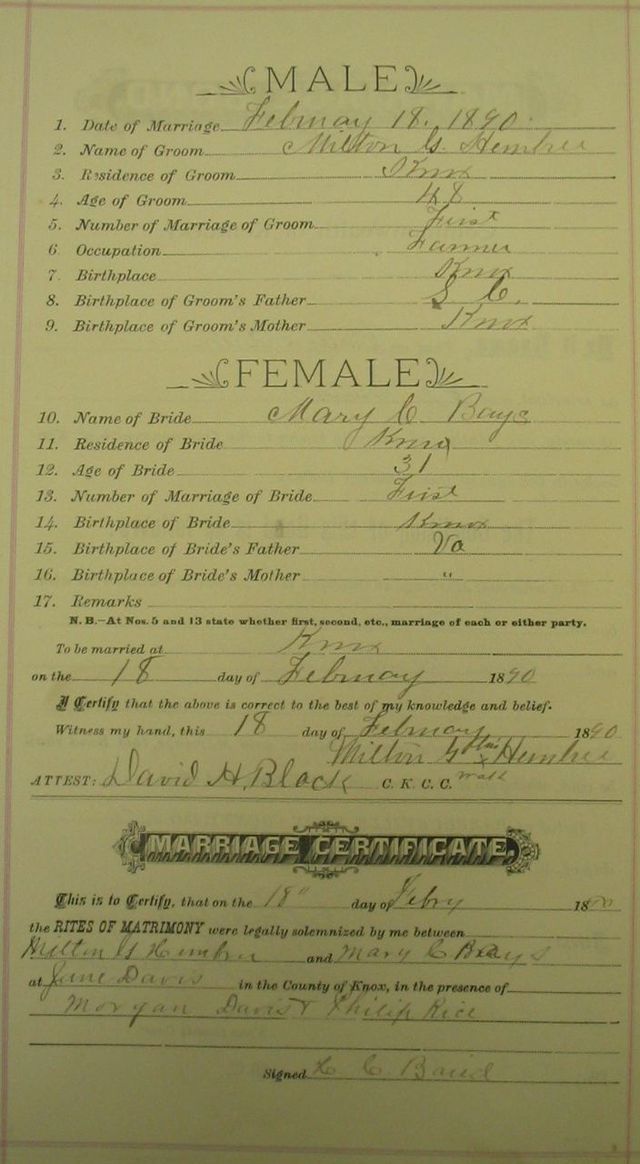 MALE
1. Date of Marriage February 18. 1890
2. Name of Groom Milton G. Hembree
3. Residence of Groom Knox
4. Age of Groom
5. Number of Marriage of Groom First
6. Occupation Farmer
7. Birthplace Knox
8. Birthplace of Groom's Father S C.
9. Birthplace of Groom's Mother Knox
FEMALE
10. Name of Bride Mary C Bays
11. Residence of Bride Knox
12. Age of Bride 31
13. Number of Marriage of Bride First
14. Birthplace of Bride Knox
15. Birthplace of Bride's Father Va
16. Birthplace of Bride's Mother "
17. Remarks
N. B.—At Nos. 5 and 13 state whether first, second, etc., marriage of each or either party.
To be married at Knox
on the 18 day of February 1890
I Certify that the above is correct to the best of my knowledge and belief.
Witness my hand, this 18 day of February 1890
Milton G his x mark Hembree
ATTEST: David H. Black C. K. C. C.
MARRIAGE CERTIFICATE.
This is to Certify, that on the 18" day of Febry 1890
the RITES OF MATRIMONY were legally solemnized by me between
Milton G Hembree and Mary C Bays
at Jane Davis in the County of Knox, in the presence of
Morgan Davis & Philip Rice
Signed C Baird